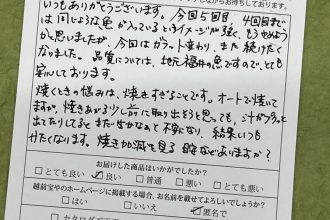 しながらお待ちしております。
いつもありがとうございます。今回5回目 4回目まで
は同じような魚が入っているというイメージが強く、もうやめよう
かと思いましたが、今回はガラット変わり、また続けたく
なりました。品質については、地元福井の魚ですので、とても
安心しております。
焼くときの悩みは、焼きすぎることです。オートで焼いて
ますが、焼きあがる少し前に取り出そうと思っても、汁がブクっと
出てたりしてるとまだ生かなぁと不安になり、結果いつも
やけたくなります。焼き加減を見る目安などありますか?
お届けした商品はいかがでしたか?
□とても良い ☑良い □普通 □悪い □とても悪い
越前宝やのホームページに掲載する場合、お名前を載せてよろしいでしょうか?
□はい □いいえ ☑匿名で